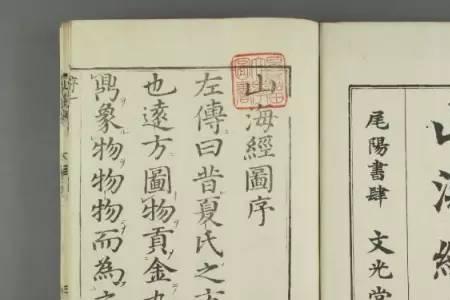 山海經
尾陽書肆 文光堂
山海經圖序
左傳曰昔夏氏之方
也遠方圖物貢金九
鼎象物物物而為